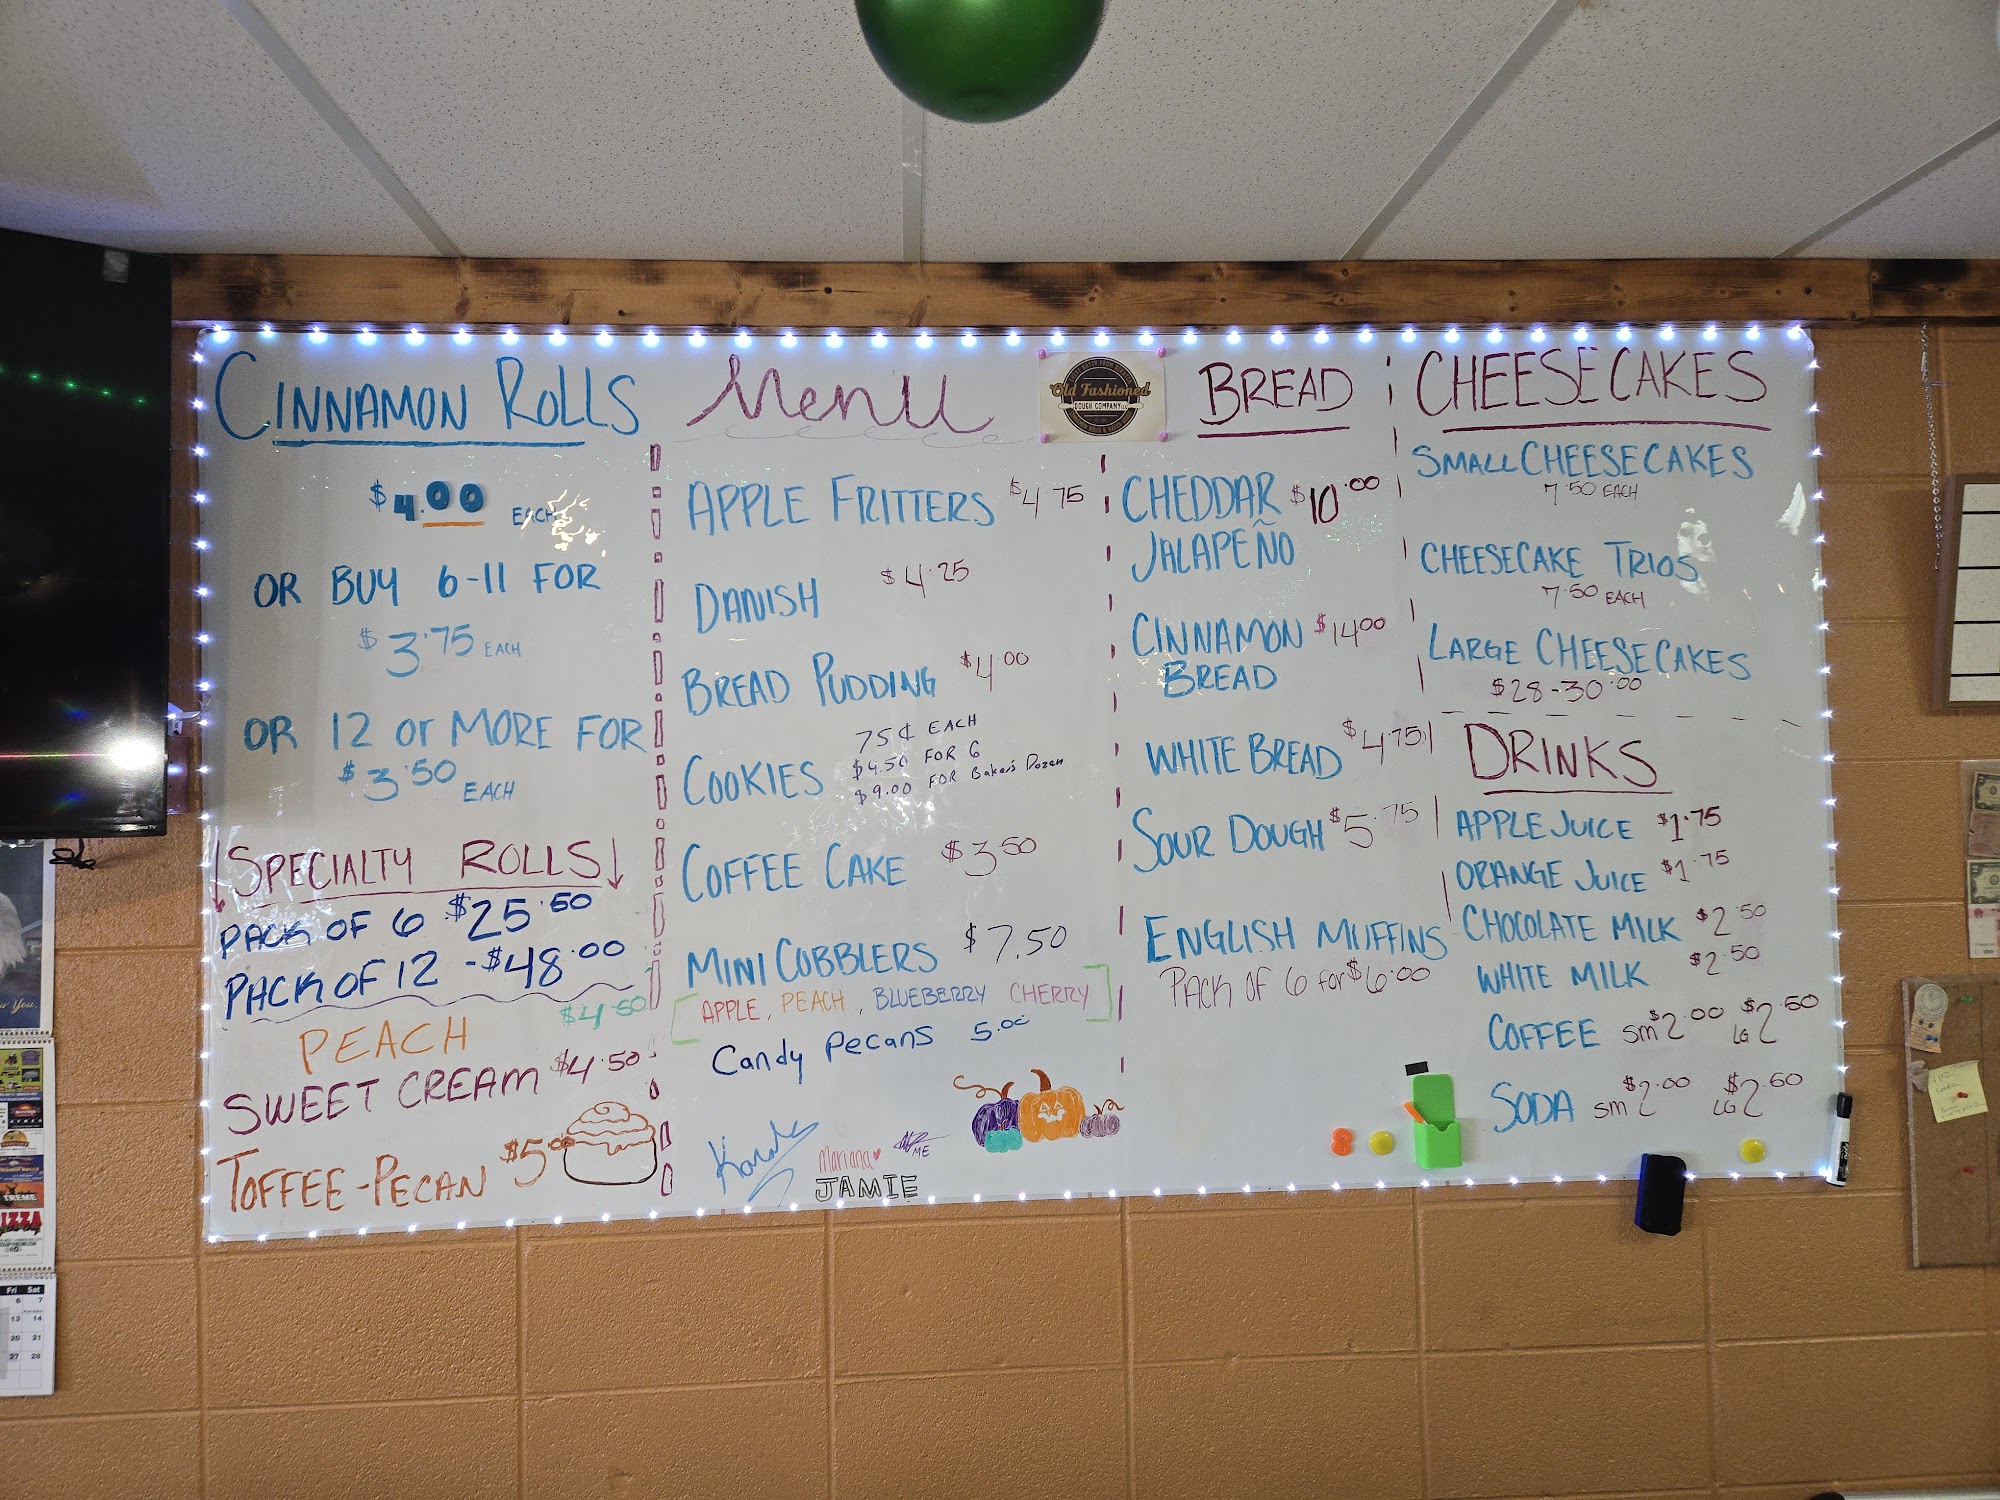 CINNAMON ROLLS
$4.00 EACH
OR BUY 6-11 FOR
$3.75 EACH
OR 12 or MORE FOR
$3.50 EACH
SPECIALTY ROLLS
PACK OF 6 $25.50
PACK OF 12 - $48.00
PEACH $4.50
SWEET CREAM $4.50
TOFFEE-PECAN $5.00
Menu
APPLE FRITTERS $4.75
DANISH $4.25
BREAD PUDDING $4.00
COOKIES 75¢ EACH
$4.50 FOR 6
$9.00 FOR Baker's Dozen
COFFEE CAKE $3.50
MINI COBBLERS $7.50
[APPLE, PEACH, BLUEBERRY CHERRY]
Candy Pecans 5.00
Mariana
ME
JAMIE
Old Fashioned
DOUGH COMPANY LLC
BREAD
CHEDDAR $10.00
JALAPEÑO
CINNAMON $14.00
BREAD
WHITE BREAD $4.75
SOUR DOUGH $5.75
ENGLISH MUFFINS
PACK OF 6 for $6.00
CHEESECAKES
SMALL CHEESECAKES
7.50 EACH
CHEESECAKE TRIOS
7.50 EACH
LARGE CHEESECAKES
$28-30.00
DRINKS
APPLE JUICE $1.75
ORANGE JUICE $1.75
CHOCOLATE MILK $2.50
WHITE MILK $2.50
COFFEE sm $2.00 LG $2.50
SODA sm $2.00 LG $2.60
TREME
PIZZA
Fri Sat
6 7
13 14
20 21
27 28